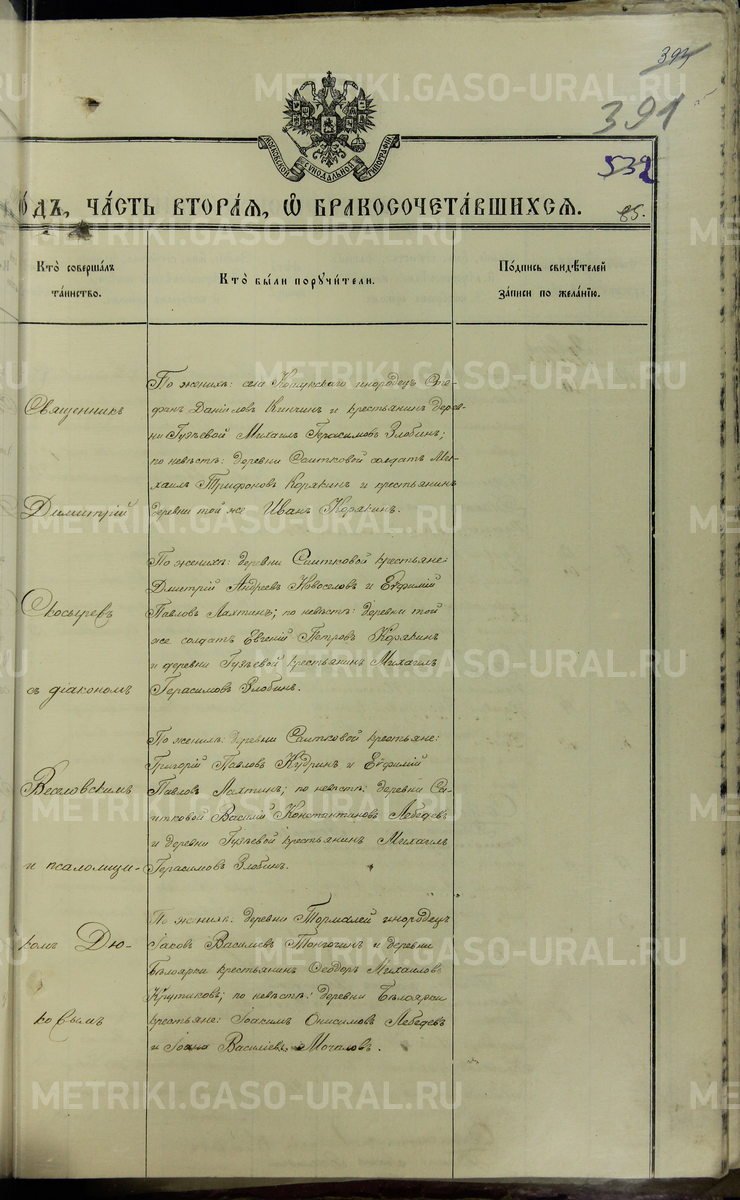 393
391
532
МОСКОВСКОЙ СѴНОДАЛЬНОЙ ТИПОГРАФІИ
ОДЪ, ЧА́СТЬ ВТОРА́Я, Ѿ БРАКОСОЧЕТА́ВШИХСЯ.
85.
Кто̀ соверша́лъ
та́инство.
Кто̀ бы́ли порꙋчи́тели.
По́дпись свидѣ́телей
за́писи по жела́нію.
Священникъ
Димитрій
Скосыревъ
съ діакономъ
Веселовскимъ
и псаломщи-
комъ Дю-
ковымъ
По женихѣ: села Кошукскаго инородецъ Сте-
фанъ Даніиловъ Кинчинъ и крестьянинъ дерев-
ни Гузѣевой Михаилъ Герасимовъ Злобинъ;
по невѣстѣ: деревни Саитковой солдатъ Ми-
хаилъ Трифоновъ Корякинъ и крестьянинъ
деревни той же Иванъ Корякинъ.
По женихѣ: деревни Саитковой крестьяне:
Дмитрій Андреевъ Новоселовъ и Евфимій
Павловъ Лаптинъ; по невѣстѣ: деревни той
же солдатъ Евгеній Петровъ Корякинъ
и деревни Гузѣевой крестьянинъ Михаилъ
Герасимовъ Злобинъ.
По женихѣ: деревни Саитковой крестьяне:
Григорій Павловъ Кудринъ и Евфимій
Павловъ Лаптинъ; по невѣстѣ: деревни Са-
итковой Василій Константиновъ Лебедевъ
и деревни Гузѣевой крестьянинъ Михаилъ
Герасимовъ Злобинъ.
По женихѣ: деревни Тормалей инородецъ
Іаковъ Василіевъ Тонгочинъ и деревни
Бѣлоярки крестьянинъ Ѳеодоръ Михаиловъ
Крутиковъ; по невѣстѣ: деревни Бѣлоярки
крестьяне: Іоакимъ Онисимовъ Лебедевъ
и Іоаннъ Василіевъ Мочаловъ.
METRIKI.GASO-URAL.RU